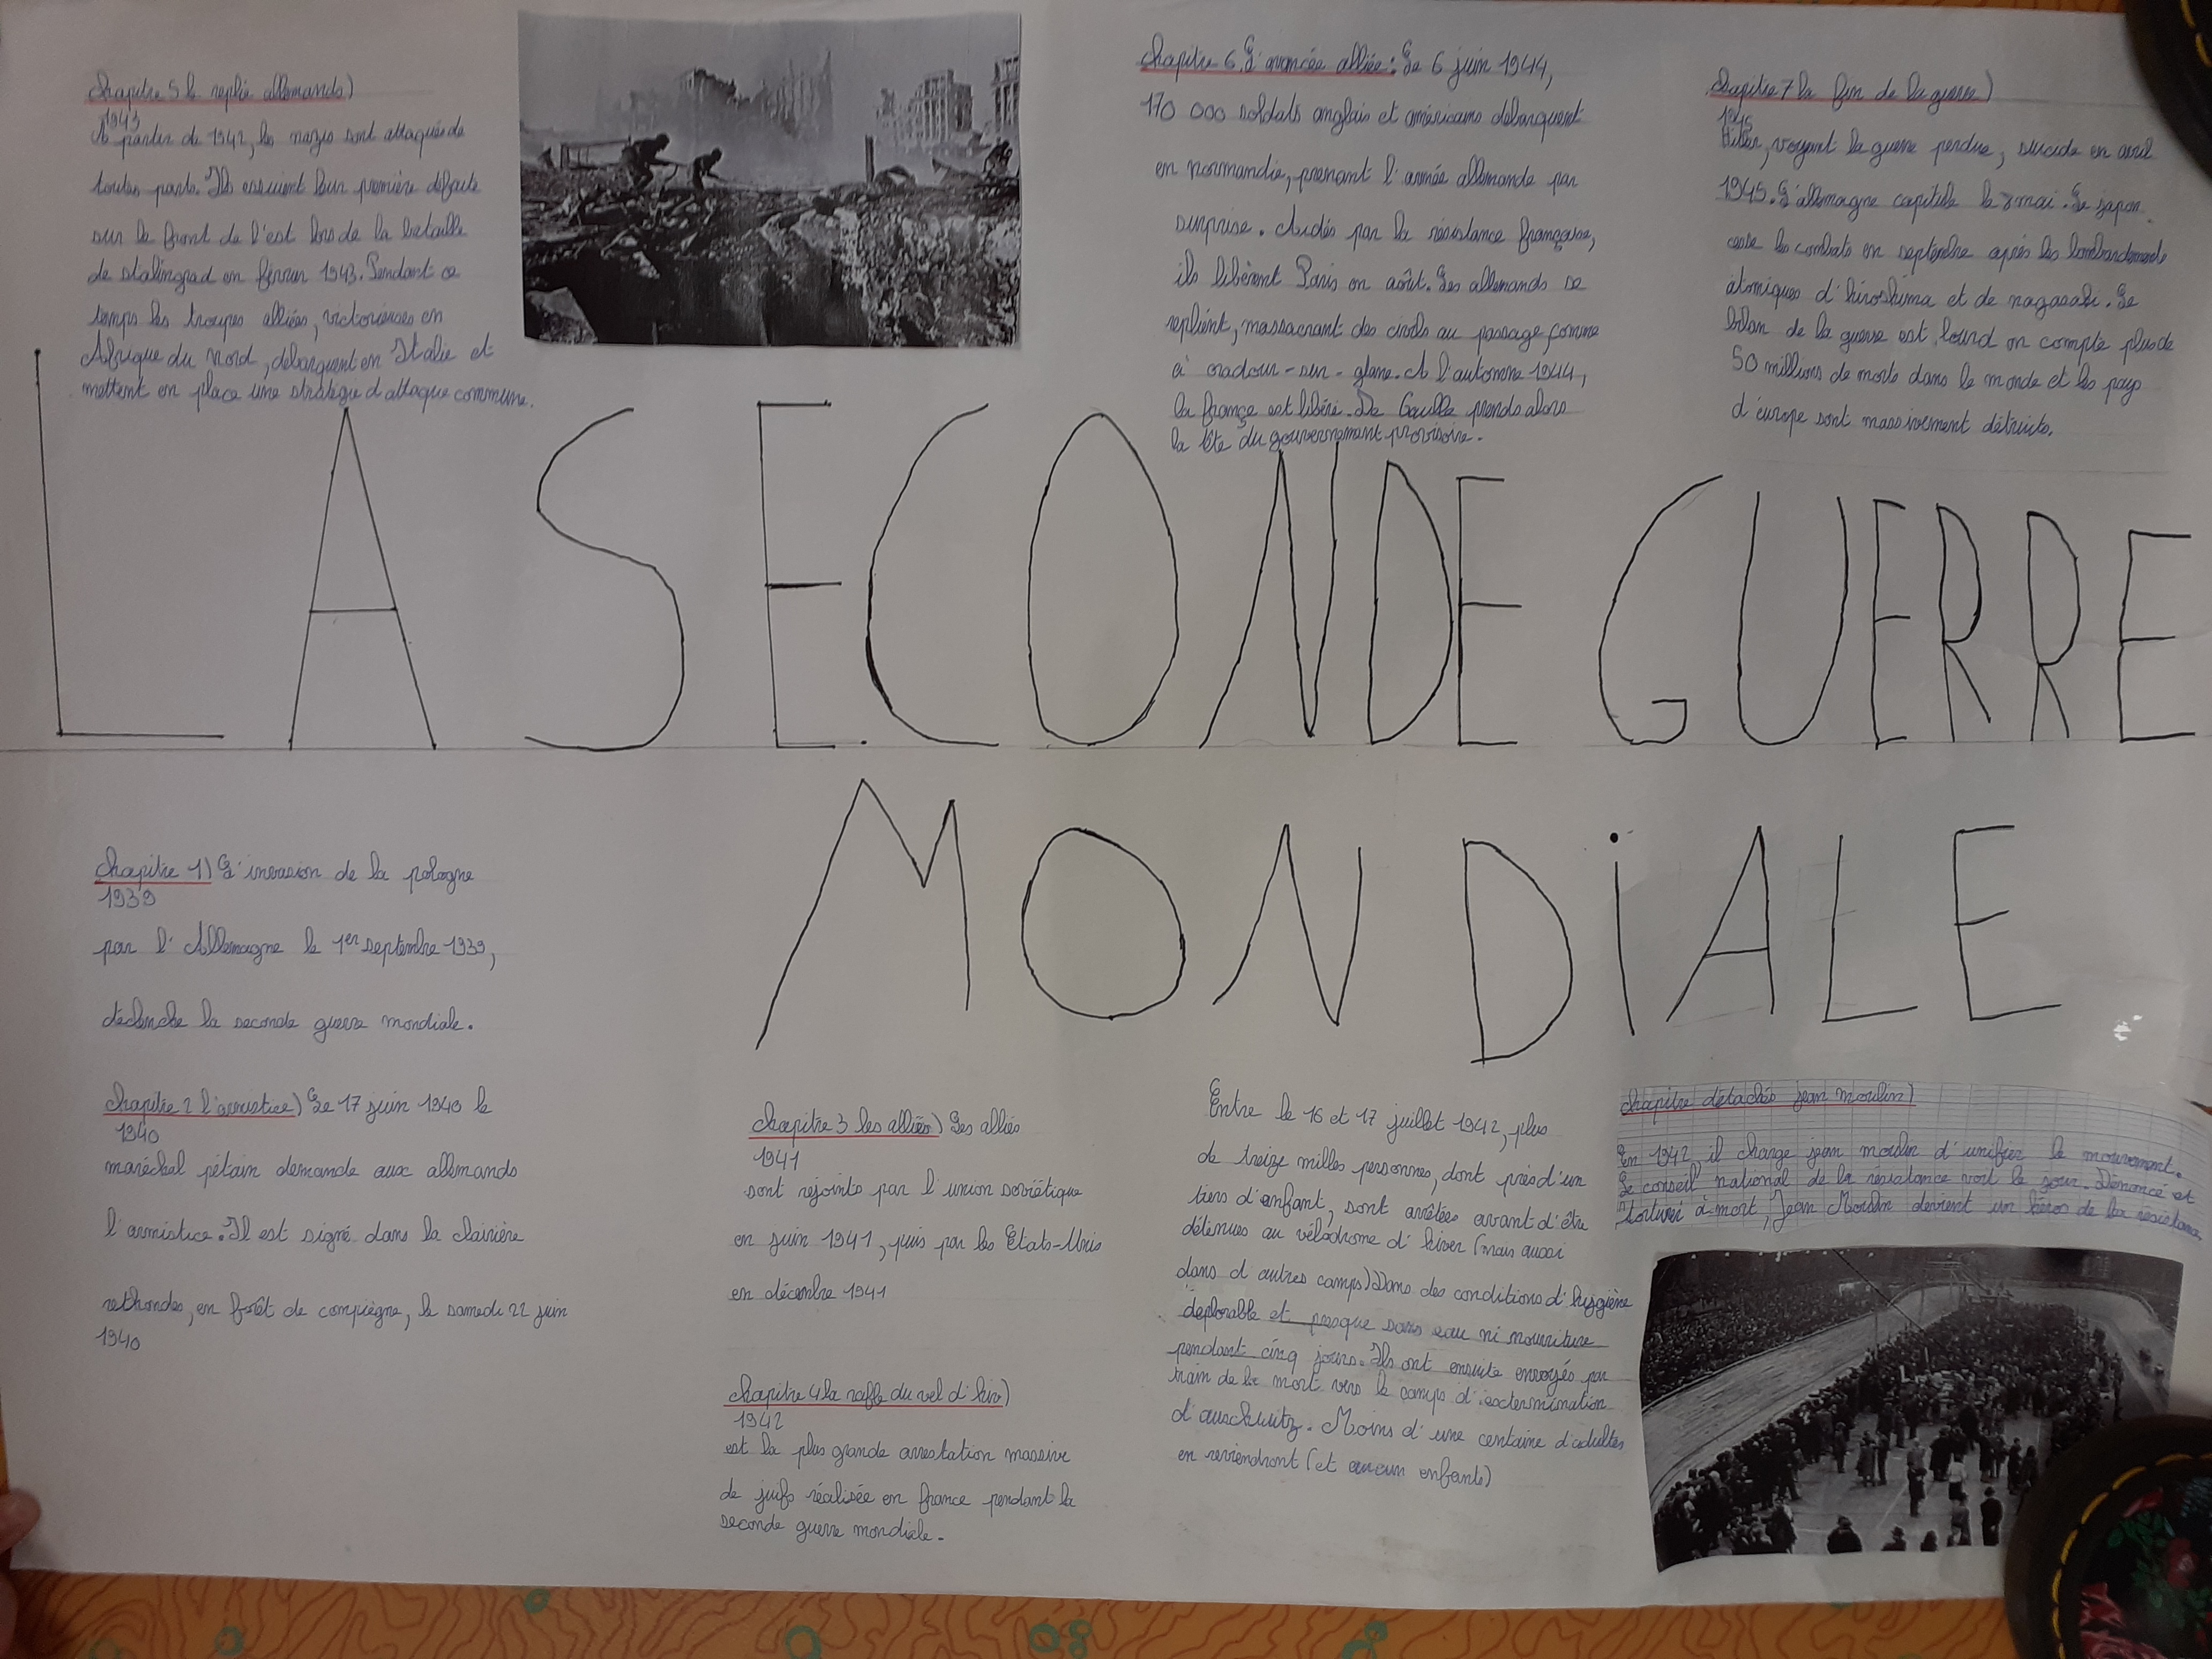 chapitre 5 le replie allemands)
1943
A partir de 1942, les nazis sont attaquée de
toutes parts. Ils essuient leur première défaite
sur le front de l'est lors de la bataille
de stalingrad en février 1943. Pendant ce
temps les troupes alliées, victorieuses en
Afrique du Nord, débarquent en Italie et
mettent en place une stratégie d'attaque commune.
chapitre 6 L'avancée alliée: Le 6 juin 1944,
170 000 soldats anglais et américains débarquent
en normandie, prenant l'armée allemande par
surprise. Aidés par la résistance française,
ils libèrent Paris en août. Les allemands se
replient, massacrant des civils au passage, comme
à oradour-sur-glane. A l'automne 1944,
la france est libéré. De Gaulle prends alors
la tête du gouvernement provisoire.
chapitre 7 la fin de la guerre)
1945
Hitler, voyant la guerre perdue, suicide en avril
1945. L'allemagne capitule le 8 mai. Le japon
cesse les combats en septembre après les bombardements
atomiques d'hiroshima et de nagasaki. Le
bilan de la guerre est lourd on compte plus de
50 millions de morts dans le monde et les pays
d'europe sont massivement détruits.
LA SECONDE GUERRE
MONDiALE
chapitre 1) L'invasion de la pologne
1939
par l'Allemagne le 1er septembre 1939,
déclenche la seconde guerre mondiale.
chapitre 2 l'armistice) Le 17 juin 1940 le
1940
maréchal pétain demande aux allemands
l'armistice. Il est signé dans la clairière
rethondes, en forêt de compiègne, le samedi 22 juin
1940
chapitre 3 les alliés) Les alliés
1941
sont rejoints par l'union soviétique
en juin 1941, puis par les Etats-Unis
en décembre 1941
chapitre 4 la raffle du vel d'hiv)
1942
est la plus grande arrestation massive
de juifs réalisée en france pendant la
seconde guerre mondiale.
Entre le 16 et 17 juillet 1942, plus
de treize milles personnes, dont près d'un
tiers d'enfant, sont arrêtées avant d'être
détenues au vélodrome d'hiver (mais aussi
dans d autres camps) Dans des conditions d'hygiène
déplorable et presque sans eau ni nourriture
pendant cinq jours. Ils ont ensuite envoyés par
train de la mort vers le camps d'extermination
d'auschwitz. Moins d'une centaine d'adultes
en reviendront (et aucun enfants)
chapitre détachés jean moulin)
En 1942, il charge jean moulin d'unifier le mouvement.
Le conseil national de la résistance voit le jour. Dénoncé et
torturer à mort, Jean Moulin devient un héros de la résistance